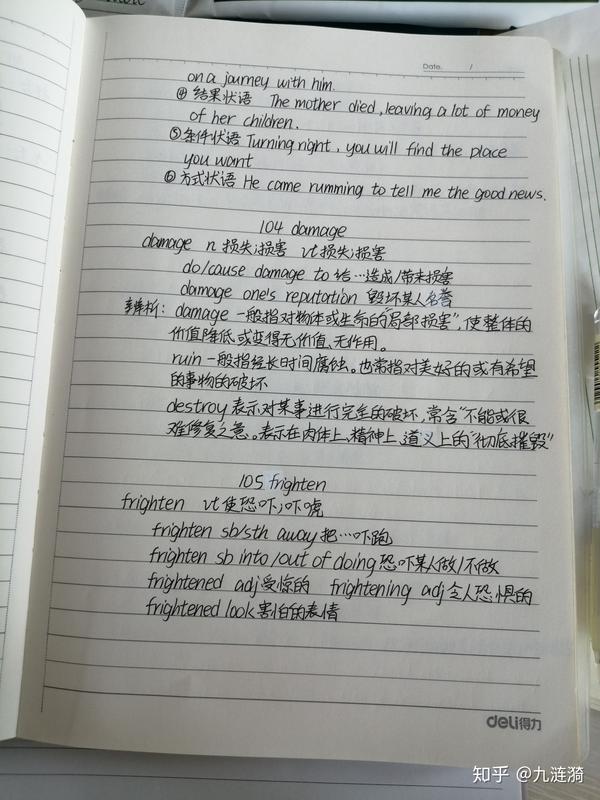 Date.       /
on a journey with him.
④ 结果状语  The mother died, leaving a lot of money
of her children.
⑤ 条件状语 Turning right, you will find the place
you want
⑥ 方式状语 He came rumming to tell me the good news.
104 damage
damage n 损失;损害  vt 损失;损害
do/cause damage to 给…造成/带来损害
damage one's reputation 毁坏某人名誉
辨析: damage 一般指对物体或生命的"局部损害", 使整体的
价值降低或变得无价值、无作用。
ruin 一般指经长时间腐蚀。也常指对美好的或有希望
的事物的破坏
destroy 表示对某事进行完全的破坏, 常含"不能或很
难修复"之意。表示在肉体上、精神上、道义上的"彻底摧毁"
105 frighten
frighten  vt 使恐吓;吓唬
frighten sb/sth away 把…吓跑
frighten sb into/out of doing 恐吓某人做/不做
frightened adj 受惊的  frightening adj 令人恐惧的
frightened look 害怕的表情
deli得力
知乎 @九涟漪